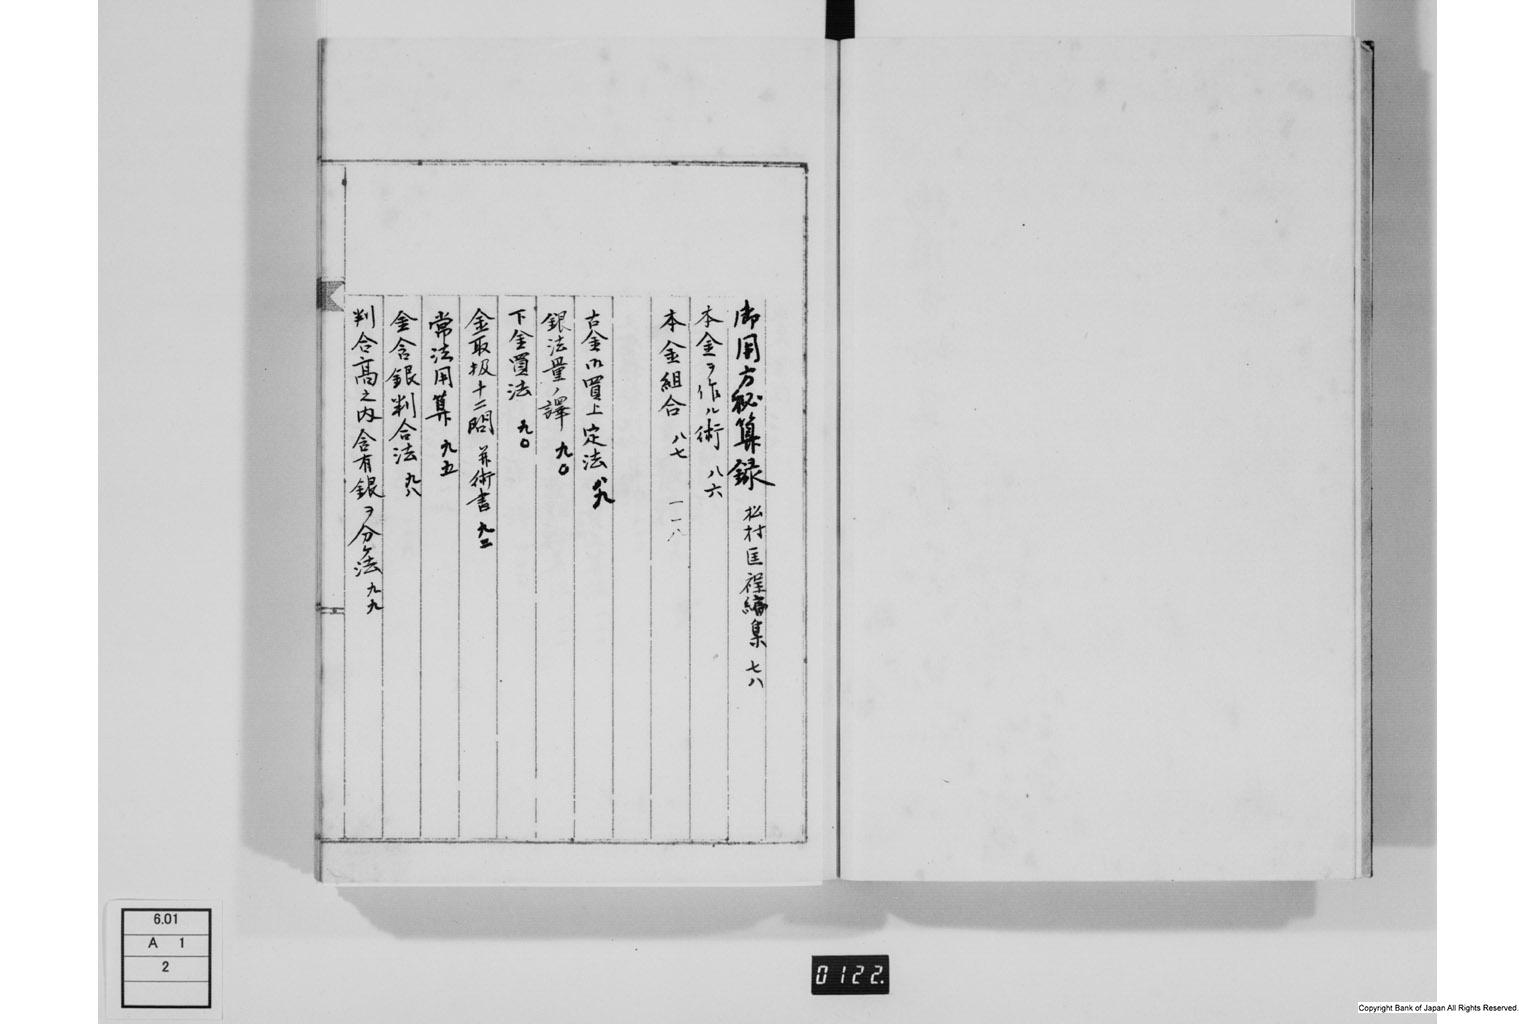 御用方秘算録 松村匡程編集 七八
本金ヲ作ル術 八六
本金組合 八七 一一八
古金以買上定法 八九
銀法量ノ譯 九〇
下金買法 九〇
金取扱十二問 并術書 九二
常法用算 九五
金含銀判合法 九八
判合高之内含有銀ヲ分ケ法 九九
6.01
A 1
2
0122.
Copyright Bank of Japan All Rights Reserved.